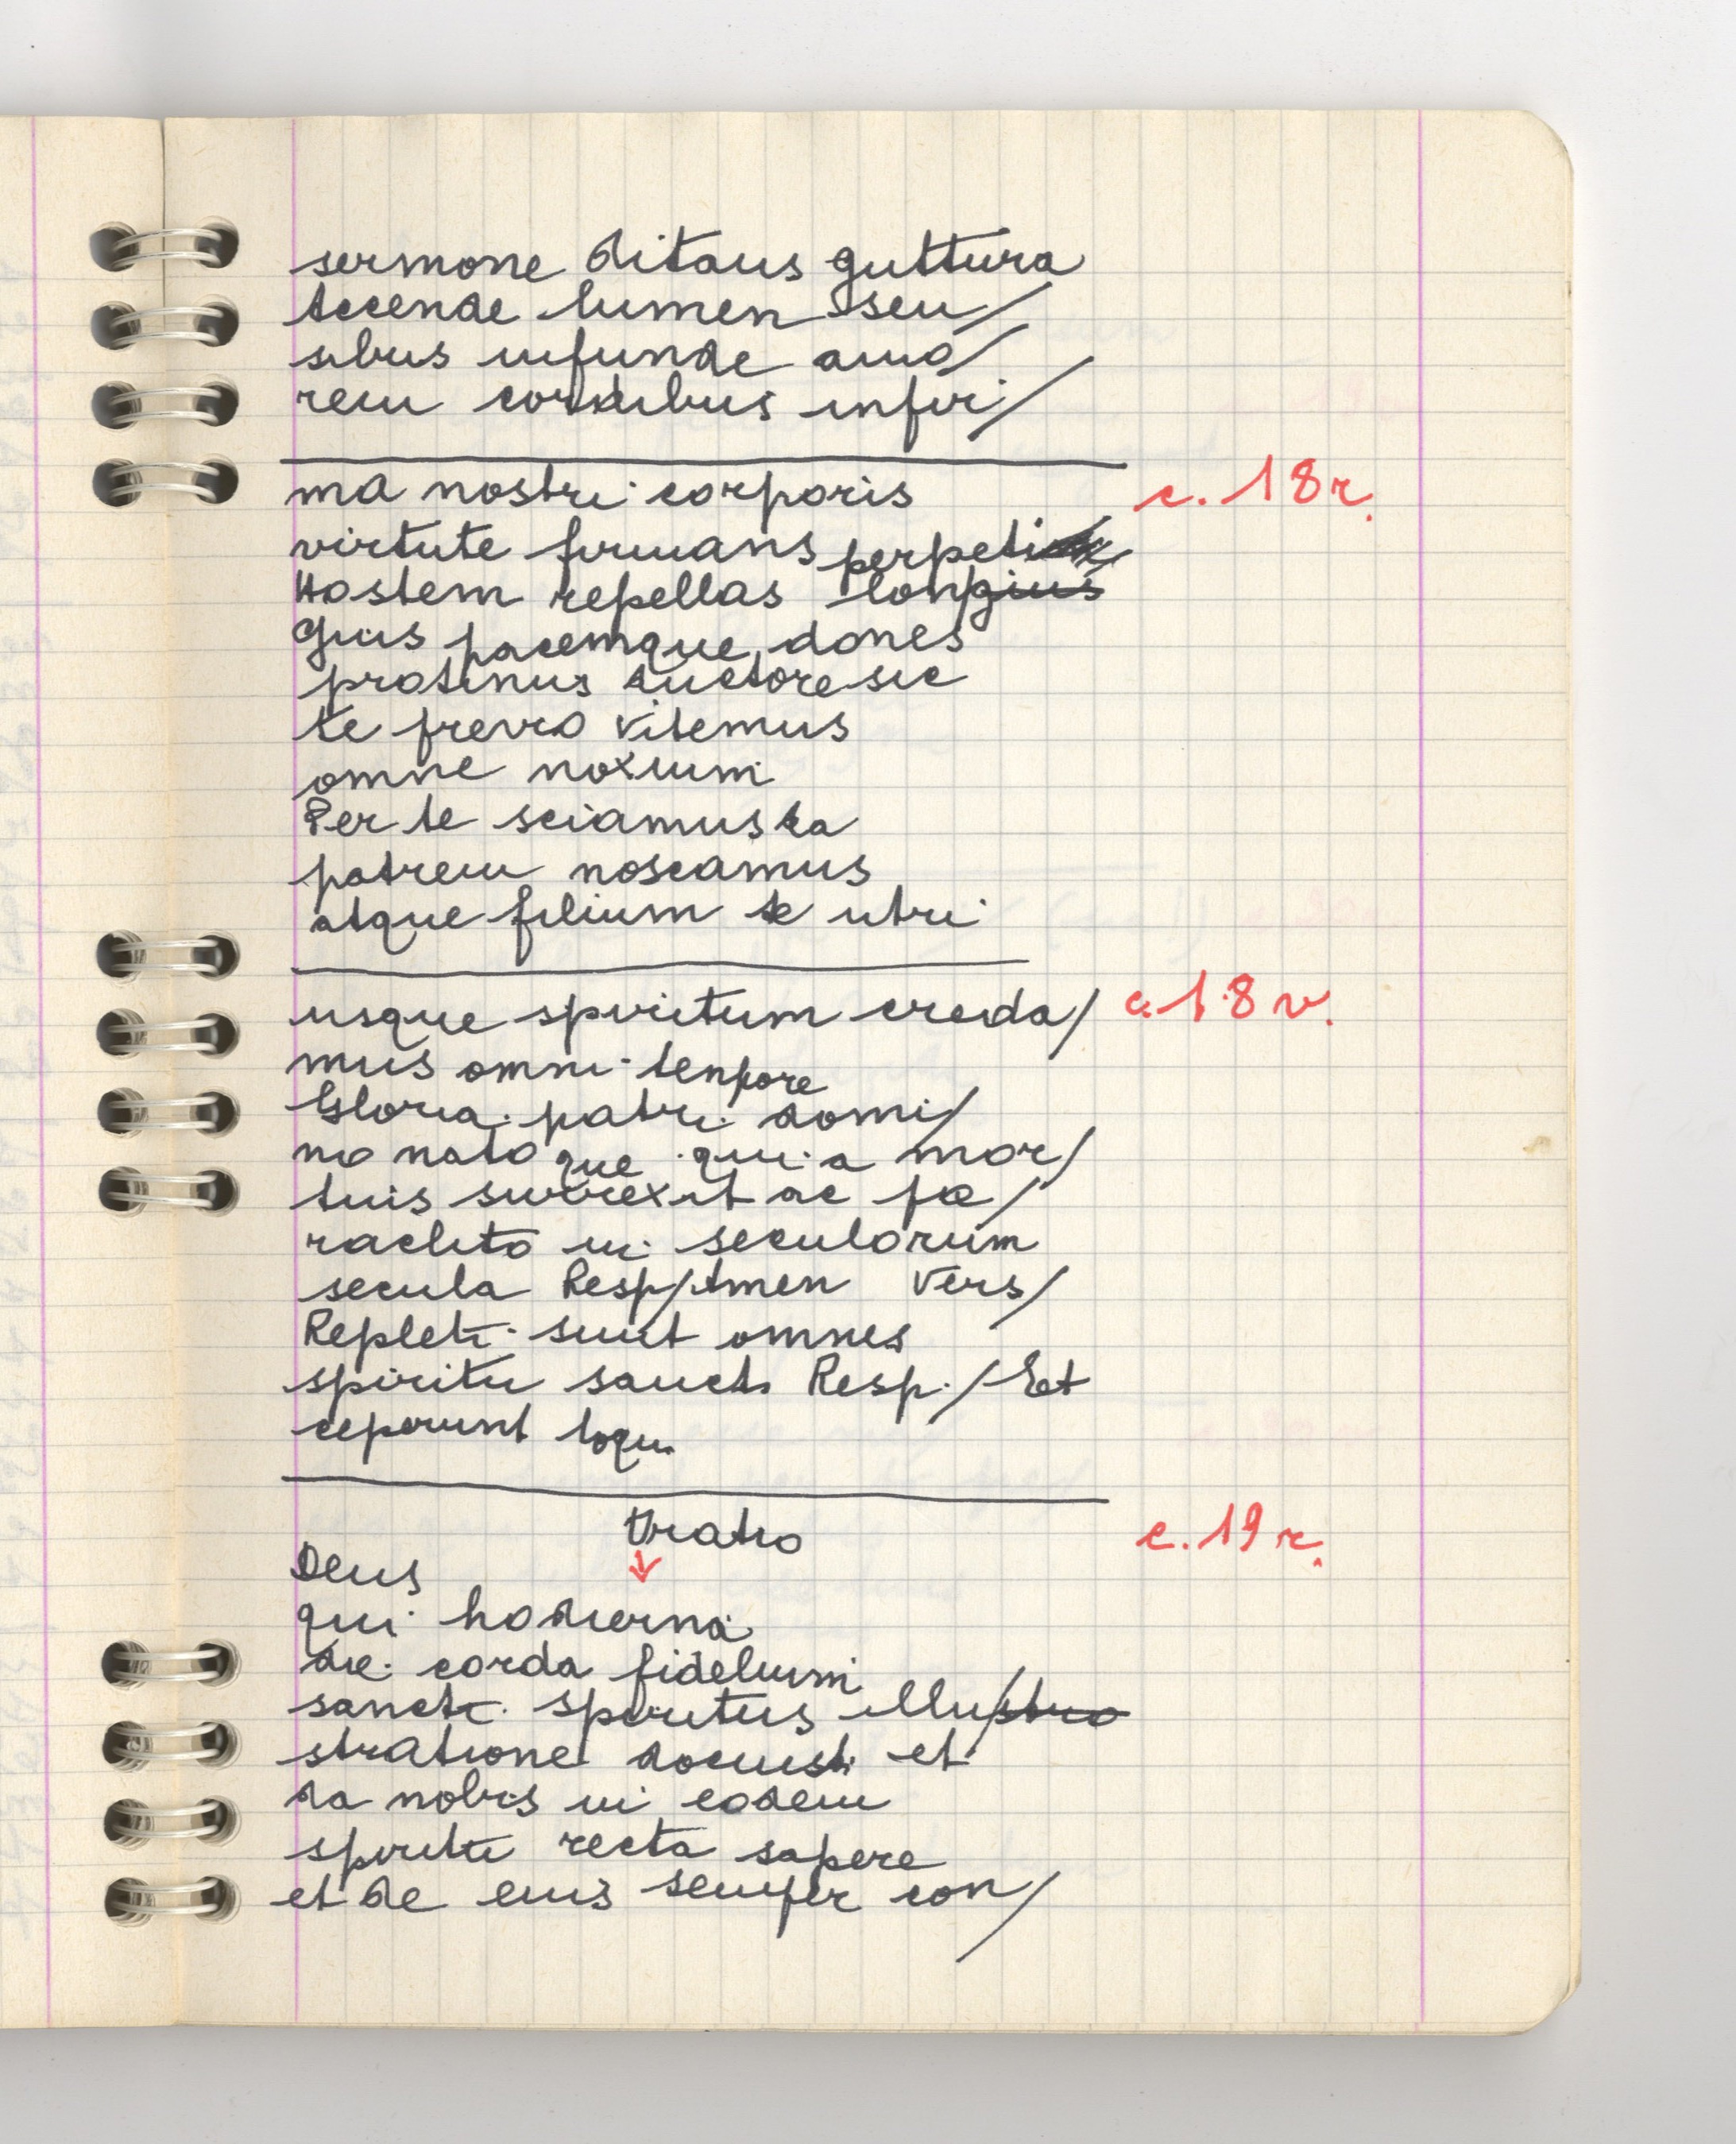 sermone ditans guttura
Accende lumen sen/
sibus infunde amo/
rem cordibus infir/
ma nostri corporis c. 18r.
virtute firmans perpeti
Hostem repellas longius
gius pacemque dones
protinus ductore sic
te previo vitemus
omne noxium
Per te sciamus da
patrem noscamus
atque filium te utri
usque spiritum creda/ c. 18 v.
mus omni tempore
Gloria patri domi/
no natoque qui a mor/
tuis surrexit ac pa/
raclito in seculorum
secula Resp/Amen Vers/
Repleti sunt omnes
spiritu sancto Resp./ Et
ceperunt loqui
Oratio c. 19 r.
Deus
qui hodierna
die corda fidelium
sancti spiritus illu/stra
stratione docuisti et
da nobis in eodem
spiritu recta sapere
et de eius semper con/